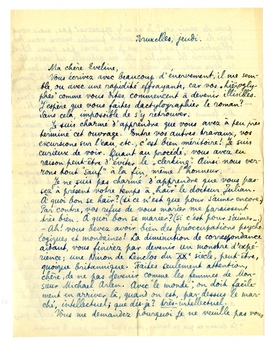 Bruxelles, jeudi.
Ma chère Eveline,
Vous écrivez avec beaucoup d'énervement, il me sem-
ble, ou avec une rapidité effrayante, car vos "hiérogly-
phes" comme vous dites commencent à devenir illisibles.
J'espère que vous faites dactylographier le roman? —
Sans cela, impossible de s'y retrouver.
Je suis charmé d'apprendre que vous avez à peu près
terminé cet ouvrage. Entre vos autres travaux, vos
excursions sur l'eau, etc., c'est bien méritoire! Je suis
curieux de voir. Quant au procédé, vous avez eu
raison peut-être d'éviter le "clerking". Ainsi nous ver-
rons tout "sauf" à la fin, même l'honneur.
Je ne suis pas charmé d'apprendre que vous pas-
sez à présent votre temps à haïr le docteur Julian.
A quoi bon se haïr? (si ce n'est que pour s'aimer encore)
Par contre, vos refus de vous marier me paraissent
très bien. A quoi bon se marier? (si c'est pour s'aimer...)
— Ah! vous devez avoir bien des préoccupations psycho-
logiques et mondaines! La dimension de correspondance
aidant, vous finirez par devenir un monstre d'expé-
rience; une Ninon de Lenclos du XXe siècle, peut-être,
quoique britannique. Faites seulement attention,
chère, de ne pas devenir comme les femmes de Mon-
sieur Michael Arlen. Avec le monde, on doit facile-
ment en arriver là, quand on est, par-dessus le mar-
ché, intellectuel; que dis-je? -intellectuel.
Vous me demandez pourquoi je ne veuille pas vous